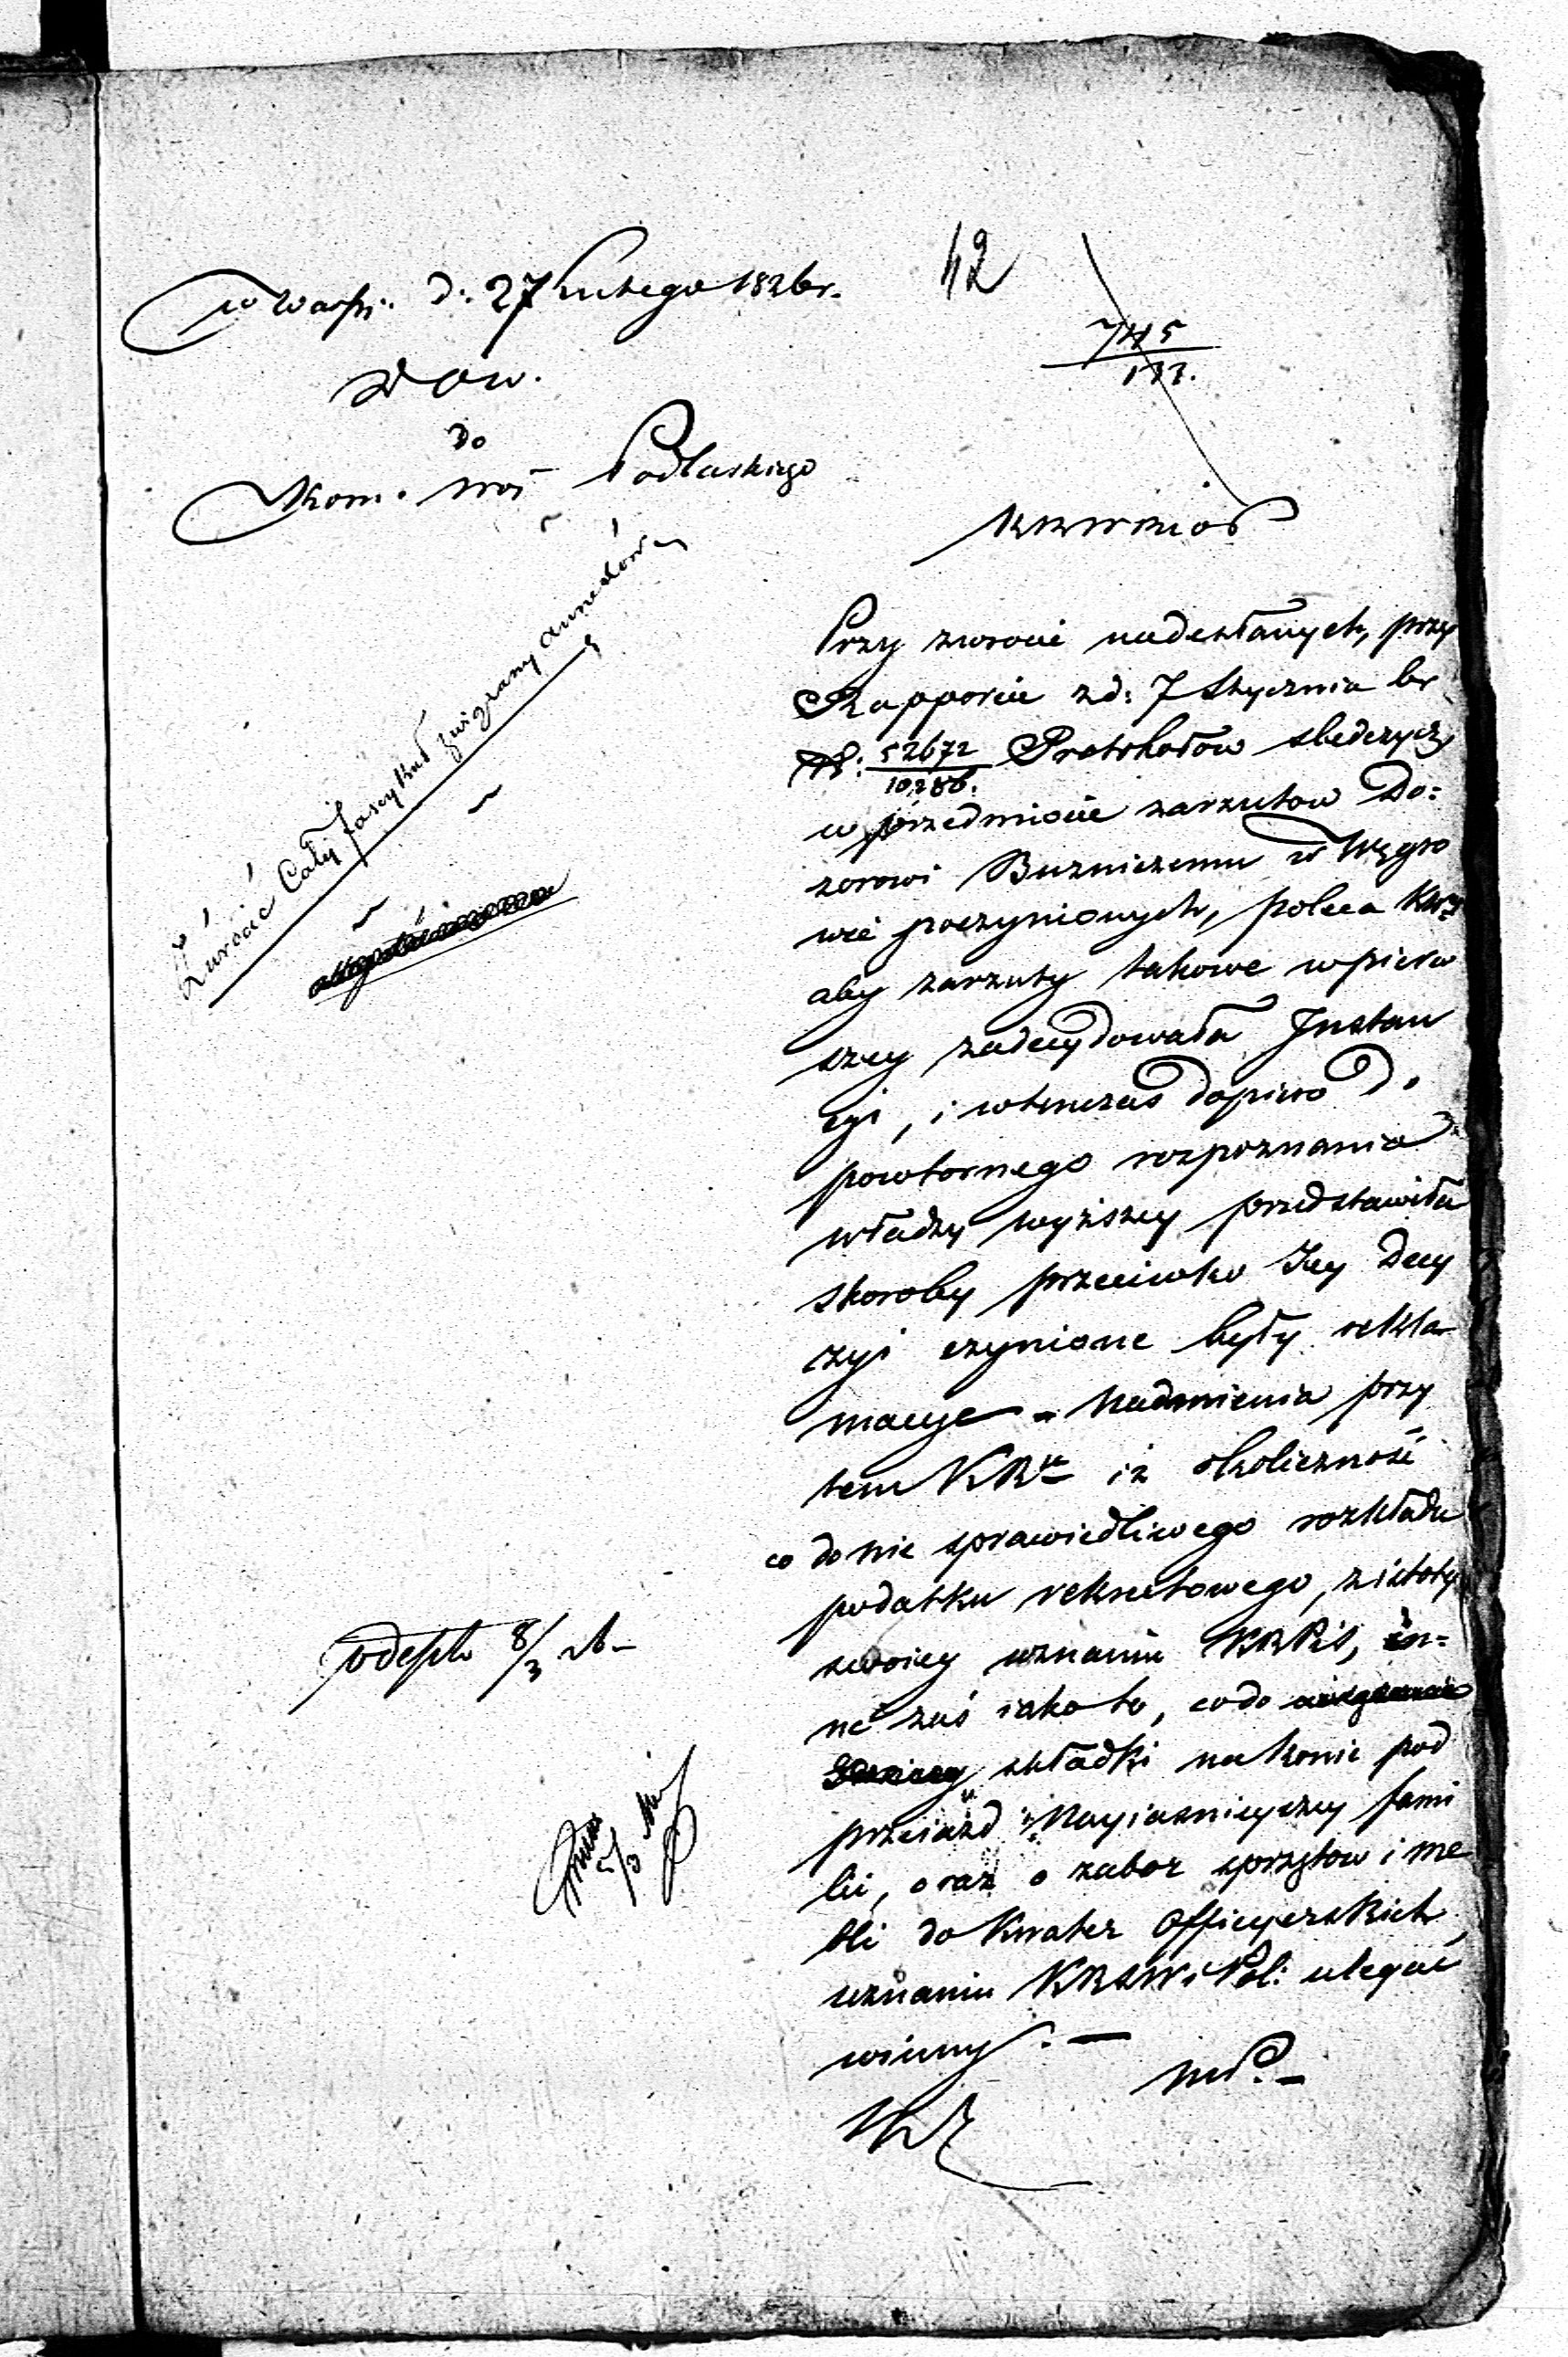 42
w Warsz: d: 27 Lutego 1826 r.
745
133.
WOW.
do
Kom. Woj Podlaskiego
KRWRiOP
Zwrócić Cały fascykuł związany annexów
Przy zwrocie nadesłanych, przy
Rapporcie z d: 7 Stycznia br
N: 52672/10286. Protokołow sledczych
w przedmiocie zarzutow Do=
zorowi Buzniczemu w Węgro
wie poczynionych, poleca KRz
aby zarzuty takowe w pierw
szey zadecydowała Instan
cyi, i wtenczas dopiero do
powtornego rozpoznania
władzy wyższey przedstawiła
skoroby przeciwko Jey Decy
zyi czynione były rekla
macye – Nadmienia przy
tem KRz iż okoliczność
co do nie sprawiedliwego rozkładu
podatku rekrutowego, z istoty
swoiey uznaniu KRPiS, in=
ne zaś iako to, co do
składki na konie pod
przeiazd Nayiasnieyszey fami
lii, oraz o zabor sprzętow i me
bli do Kwater Officyerskich
uznaniu KRSWiPol: ulegać
winny. —
MP. –
odeszło 8/3 26 –
5/3